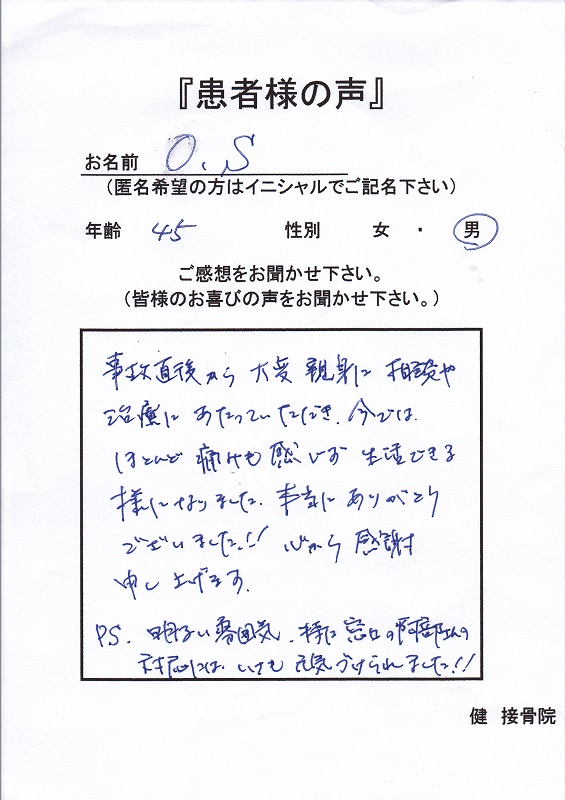 『患者様の声』
お名前 O.S
(匿名希望の方はイニシャルでご記名下さい)
年齢 45 性別 女 ・ 男
ご感想をお聞かせ下さい。
(皆様のお喜びの声をお聞かせ下さい。)
事故直後から大変親身に相談や
治療にあたっていただき、今では、
ほとんど痛みも感じず生活できる
様になりました。本当にありがとう
ございました!! 心から感謝
申し上げます。
PS. 明るい雰囲気、特に窓口の阿部さんの
対応には、いつも元気づけられました!!
健 接骨院